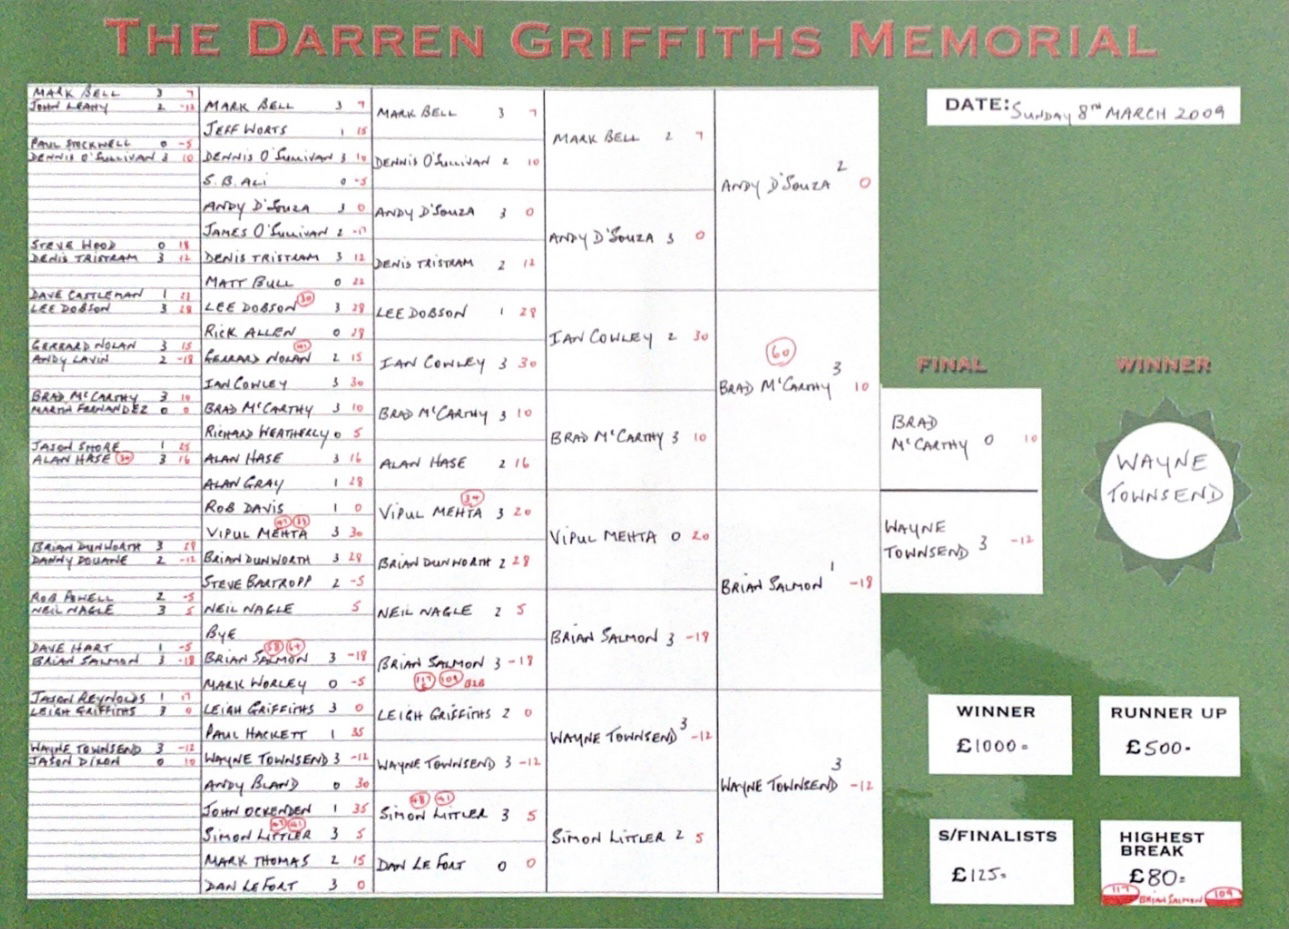 THE DARREN GRIFFITHS MEMORIAL
DATE: SUNDAY 8TH MARCH 2009
MARK BELL 3 7
JOHN LEAHY 2 -12
PAUL STOCKWELL 0 -5
DENNIS O'SULLIVAN 3 10
STEVE HOOD 0 18
DENIS TRISTRAM 3 12
DAVE CASTLEMAN 1 23
LEE DOBSON 3 28
GERRARD NOLAN 3 15
ANDY LAVIN 2 -18
BRAD McCARTHY 3 10
MARTIN FERNANDEZ 0 0
JASON SHORE 1 25
ALAN HASE 3 16
BRIAN DUNWORTH 3 28
DANNY DOUANE 2 -12
ROB POWELL 2 -5
NEIL NAGLE 3 5
DAVE HART 1 -5
BRIAN SALMON 3 -18
JASON REYNOLDS 1 17
LEIGH GRIFFITHS 3 0
WAYNE TOWNSEND 3 -12
JASON DIXON 0 10
MARK BELL 3 7
JEFF WORTS 1 15
DENNIS O'SULLIVAN 3 10
S.B. ALI 0 -5
ANDY D'SOUZA 3 0
JAMES O'SULLIVAN 2 -17
DENIS TRISTRAM 3 12
MATT BULL 0 22
LEE DOBSON 30 3 28
RICK ALLEN 0 28
GERRARD NOLAN 2 15
IAN COWLEY 3 30
BRAD McCARTHY 3 10
RICHARD WEATHERLY 0 5
ALAN HASE 3 16
ALAN GRAY 1 28
ROB DAVIS 1 0
VIPUL MEHTA 3 30
BRIAN DUNWORTH 3 28
STEVE BARTROPP 2 -5
NEIL NAGLE 5
BYE
58 64
BRIAN SALMON 3 -18
MARK WORLEY 0 -5
LEIGH GRIFFITHS 3 0
PAUL HACKETT 1 35
WAYNE TOWNSEND 3 -12
ANDY BLAND 0 30
JOHN OCKENDEN 1 35
SIMON LITTLER 3 5
MARK THOMAS 2 15
DAN LE FORT 3 0
MARK BELL 3 7
DENNIS O'SULLIVAN 2 10
ANDY D'SOUZA 3 0
DENIS TRISTRAM 2 12
LEE DOBSON 1 28
IAN COWLEY 3 30
BRAD McCARTHY 3 10
ALAN HASE 2 16
34
VIPUL MEHTA 3 20
BRIAN DUNWORTH 2 28
NEIL NAGLE 2 5
BRIAN SALMON 3 -18
117 109 B2B
LEIGH GRIFFITHS 2 0
WAYNE TOWNSEND 3 -12
48 41
SIMON LITTLER 3 5
DAN LE FORT 0 0
MARK BELL 2 7
ANDY D'SOUZA 3 0
IAN COWLEY 2 30
BRAD McCARTHY 3 10
VIPUL MEHTA 0 20
BRIAN SALMON 3 -18
WAYNE TOWNSEND 3 -12
SIMON LITTLER 2 5
ANDY D'SOUZA 2 0
60
BRAD McCARTHY 3 10
BRIAN SALMON 1 -18
WAYNE TOWNSEND 3 -12
FINAL
BRAD
McCARTHY 0 10
WAYNE
TOWNSEND 3 -12
WINNER
WAYNE
TOWNSEND
WINNER
£1000=
RUNNER UP
£500=
S/FINALISTS
£125=
HIGHEST
BREAK
£80=
117 BRIAN SALMON 109